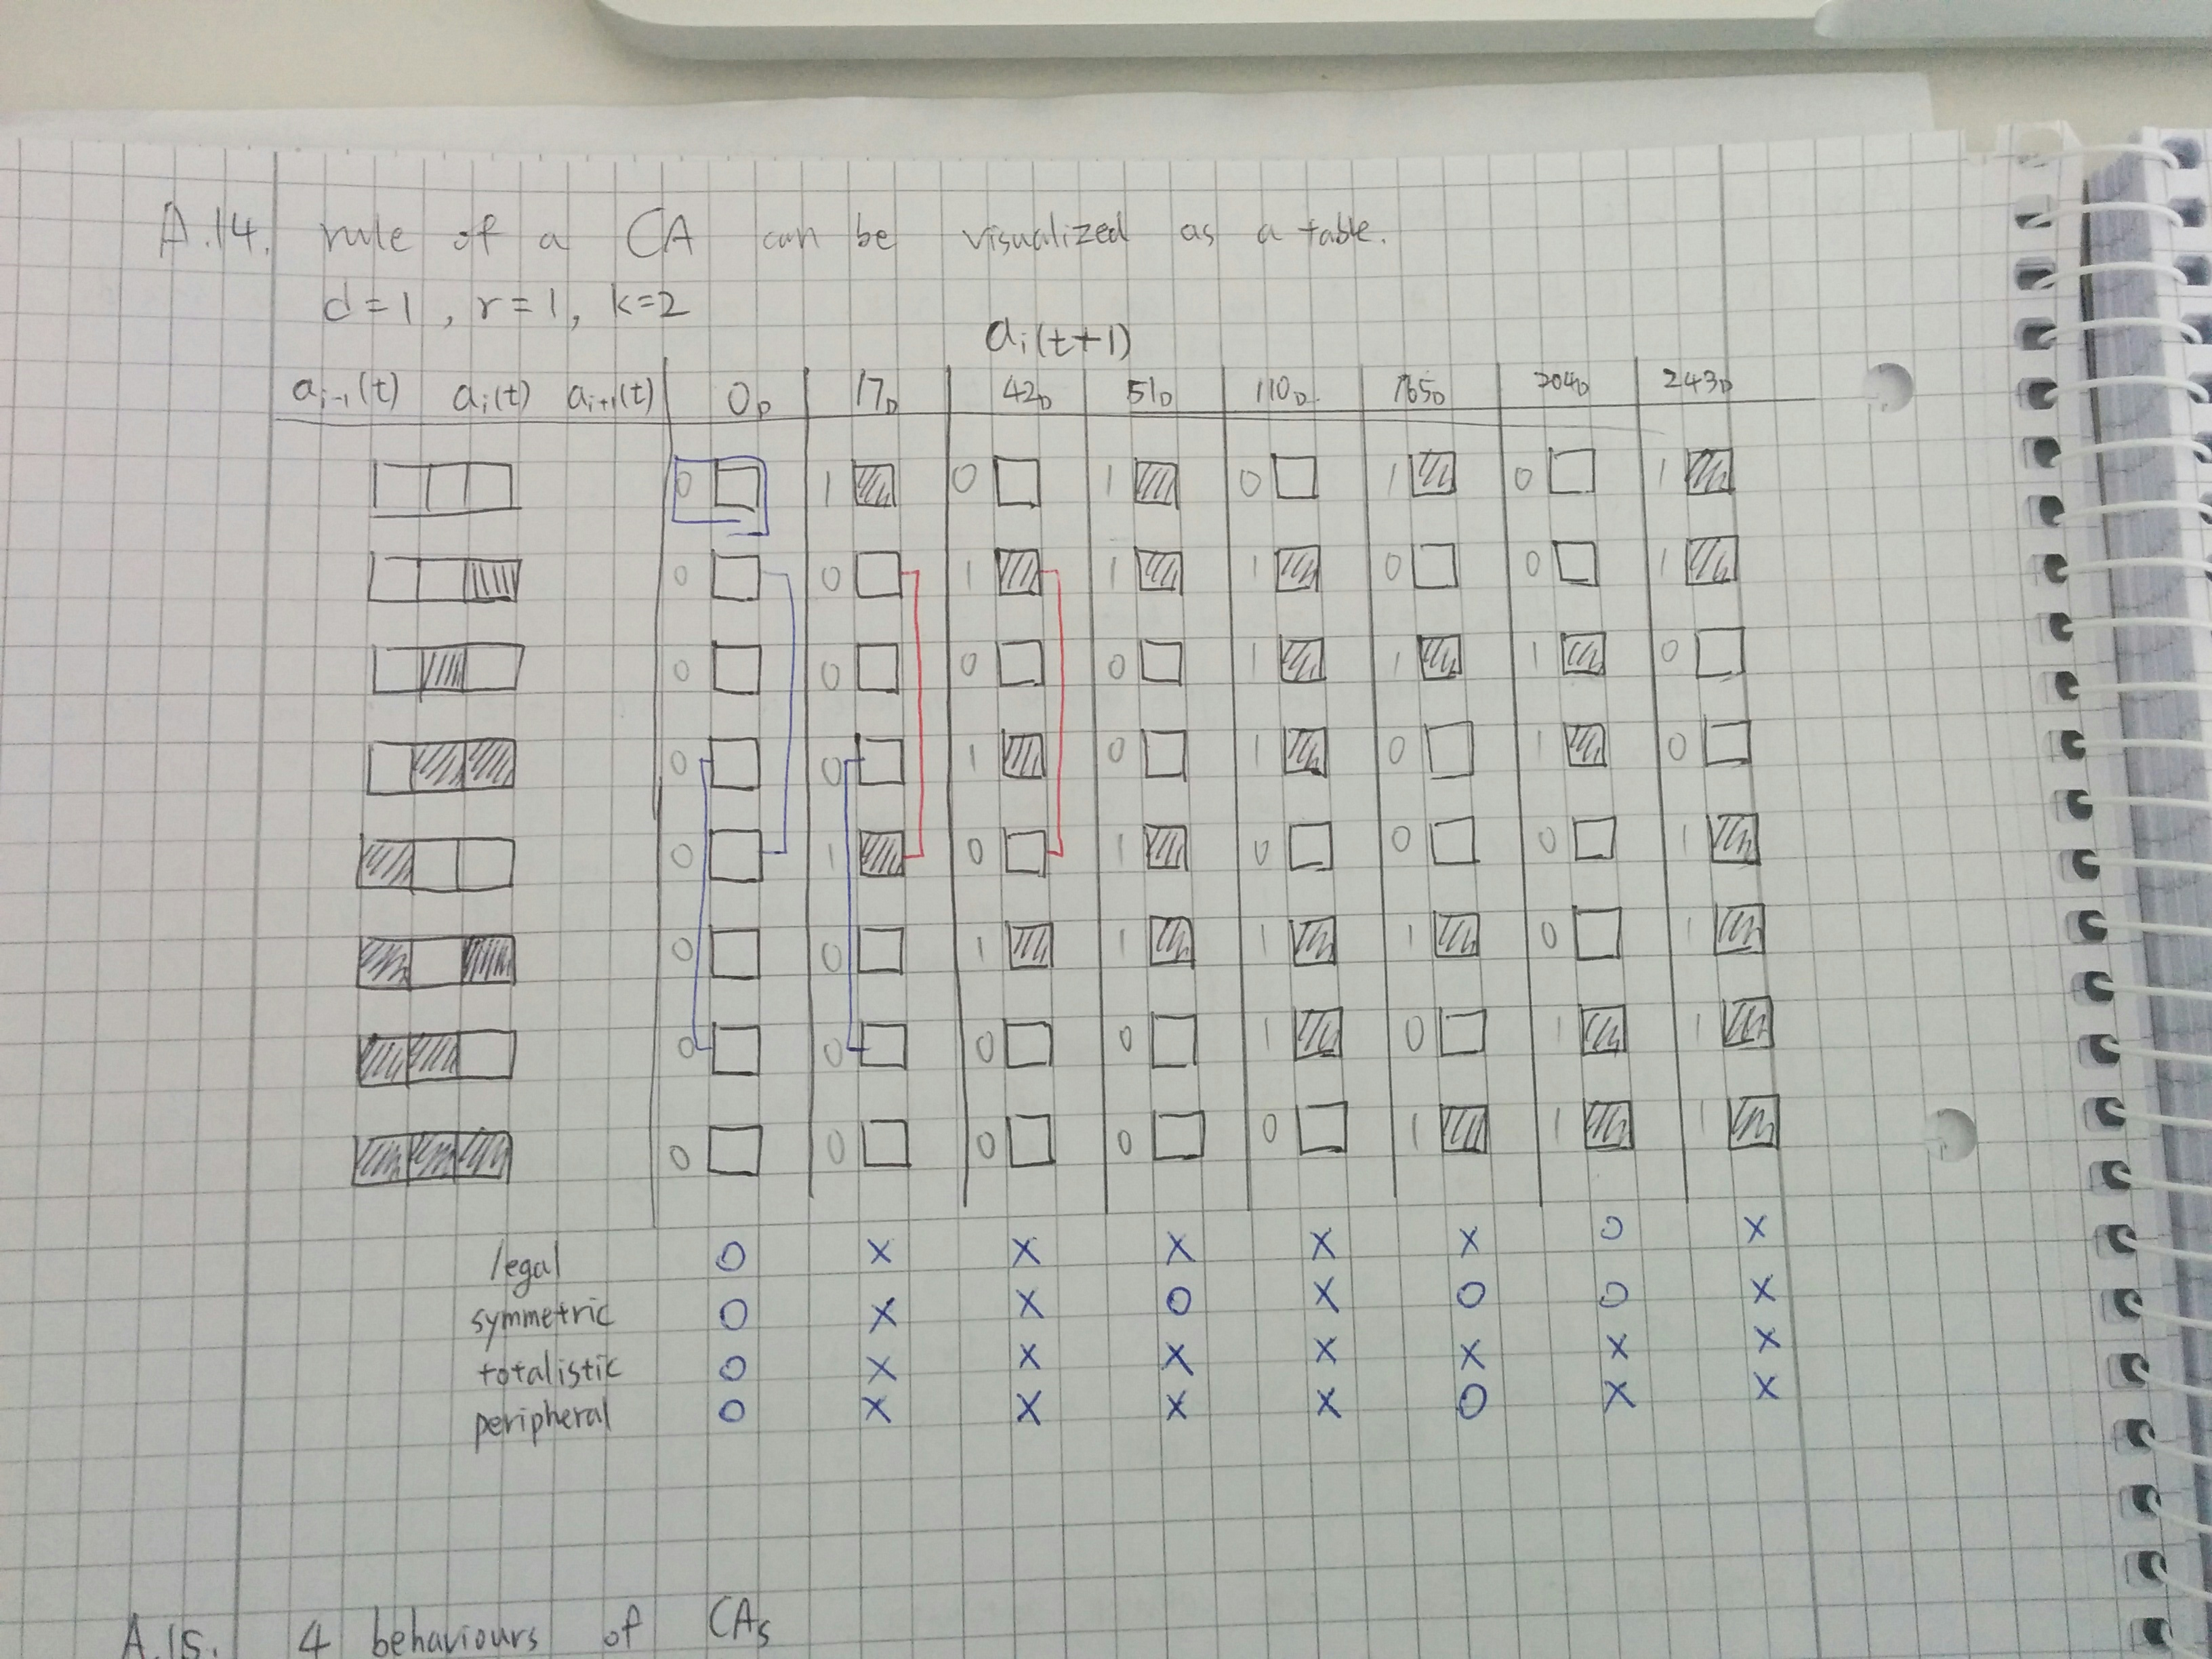 A.14. rule of a CA can be visualized as a table.
d=1, r=1, k=2
ai(t+1)
ai-1(t) ai(t) ai+1(t) 0D 17D 42D 51D 110D 165D 204D 243D
0 1 0 1 0 1 0 1
0 0 1 1 1 0 0 1
0 0 0 0 1 1 1 0
0 0 1 0 1 0 1 0
0 1 0 1 0 0 0 1
0 0 1 1 1 1 0 1
0 0 0 0 1 0 1 1
0 0 0 0 0 1 1 1
legal O X X X X X O X
symmetric O X X O X O O X
totalistic O X X X X X X X
peripheral O X X X X O X X
A.15. 4 behaviours of CAs